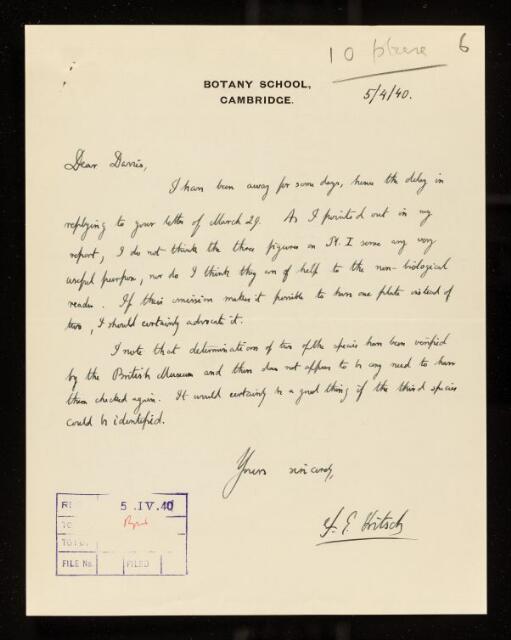 10 6
BOTANY SCHOOL,
CAMBRIDGE.
5/4/40.
Dear Davies,
I have been away for some days, hence the delay in
replying to your letter of March 29. As I pointed out in my
report, I do not think the three figures on Pl. I serve any very
useful purpose, nor do I think they are of help to the non-biological
reader. If their omission makes it possible to have one plate instead of
two, I should certainly advocate it.
I note that determinations of two of the species have been verified
by the British Museum and there does not appear to be any need to have
them checked again. It would certainly be a good thing if the third species
could be identified.
Yours sincerely,
F. E. Fritsch
5.IV.40
TO
FILE No. FILED